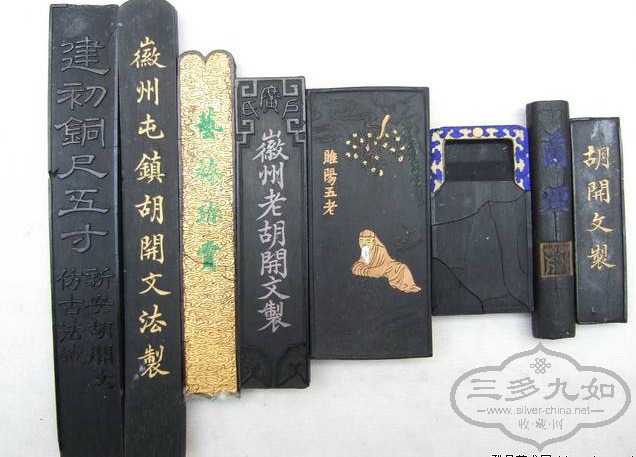 建初銅尺五寸
新安胡開文
仿古法製
徽州屯鎮胡開文法製
藝林珍賞
廣戶氏
徽州老胡開文製
睢陽五老
胡開文製
三多九如
www.silver-china.net
收藏网